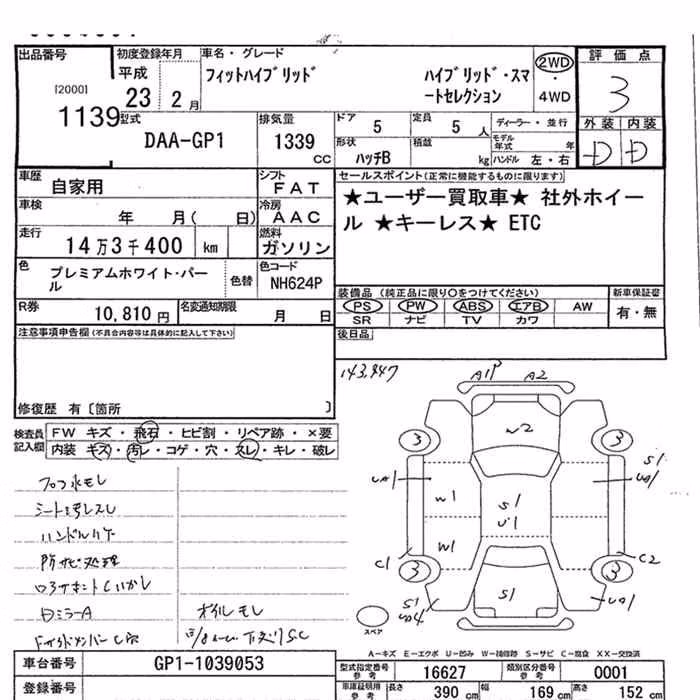 出品番号 初度登録年月 車名・グレード 評価点
[2000] 1139
平成 23 2 月
フィットハイブリッド ハイブリッド・スマートセレクション
2WD ・ 4WD
3
型式 DAA-GP1
排気量 1339 CC
ドア 5 定員 5 人 ディーラー・並行
形状 ハッチB 積載 kg モデル年式 年 ハンドル 左・右
外装 内装
D D
車歴 自家用 シフト FAT
セールスポイント(正常に機能するものに限ります)
★ユーザー買取車★ 社外ホイー
ル ★キーレス★ ETC
車検 年 月( 日) 冷房 AAC
走行 14万3千400 km 燃料 ガソリン
色 プレミアムホワイト・パール 色替 色コード NH624P
装備品(純正品に限り○をつけてください) 新車保証書
PS PW ABS エアB AW 有・無
SR ナビ TV カワ
R券 10,810円 名変通知期限 月 日
後日品
注意事項申告欄(不具合内容等は具体的に記入して下さい)
修復歴 有〔箇所 〕
検査員記入欄
FW キズ・飛石・ヒビ割・リペア跡・×要
内装 キズ・汚レ・コゲ・穴・スレ・キレ・破レ
143,447
A1P A2
W2
3 3
UA1 S1 UA1
W1 S1 U1
W1
C1 C2
3 3
S1 UA4 S1 UA1
スペア
シート汚レスレ
ハンドルハゲ
防サビ処理
DミラーA
オイルモレ
A-キズ E-エクボ U-凹み W-補修跡 S-サビ C-腐食 XX-交換済
車台番号 GP1-1039053
型式指定番号 参考 16627 類別区分番号 参考 0001
登録番号
車庫証明用 参考 長さ 390 cm 幅 169 cm 高さ 152 cm